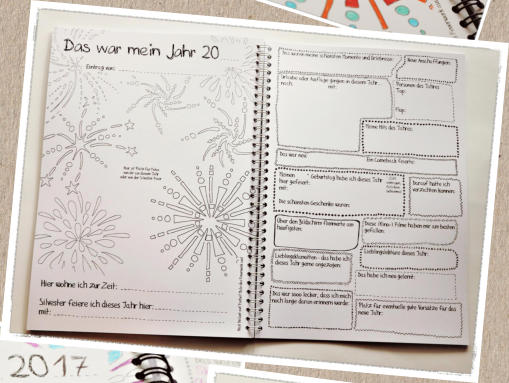 Das war mein Jahr 20
Eintrag von:
Hier wohne ich zur Zeit:
Silvester feiere ich dieses Jahr hier:
mit:
Das waren meine schönsten Momente und Erlebnisse:
Neue Anschaffungen:
Urlaube oder Ausflüge gingen in diesem Jahr...
nach: mit:
Personen des Jahres
Top:
Flop:
Meine Hits des Jahres:
Das war neu:
Ein Comeback feierte:
Meinen . Geburtstag habe ich dieses Jahr
hier gefeiert:
mit:
Die schönsten Geschenke waren:
Darauf hätte ich
verzichten können:
Über den Bildschirm flimmerte am
häufigsten:
Diese Kino-Filme haben mir am besten
gefallen:
Lieblingsklamotten - das habe ich
dieses Jahr gerne angezogen:
Lieblingslektüre dieses Jahr:
Das habe ich neu gelernt:
Das war sooo lecker, dass ich mich
noch lange daran erinnern werde:
Platz für eventuelle gute Vorsätze für das
neue Jahr:
2017